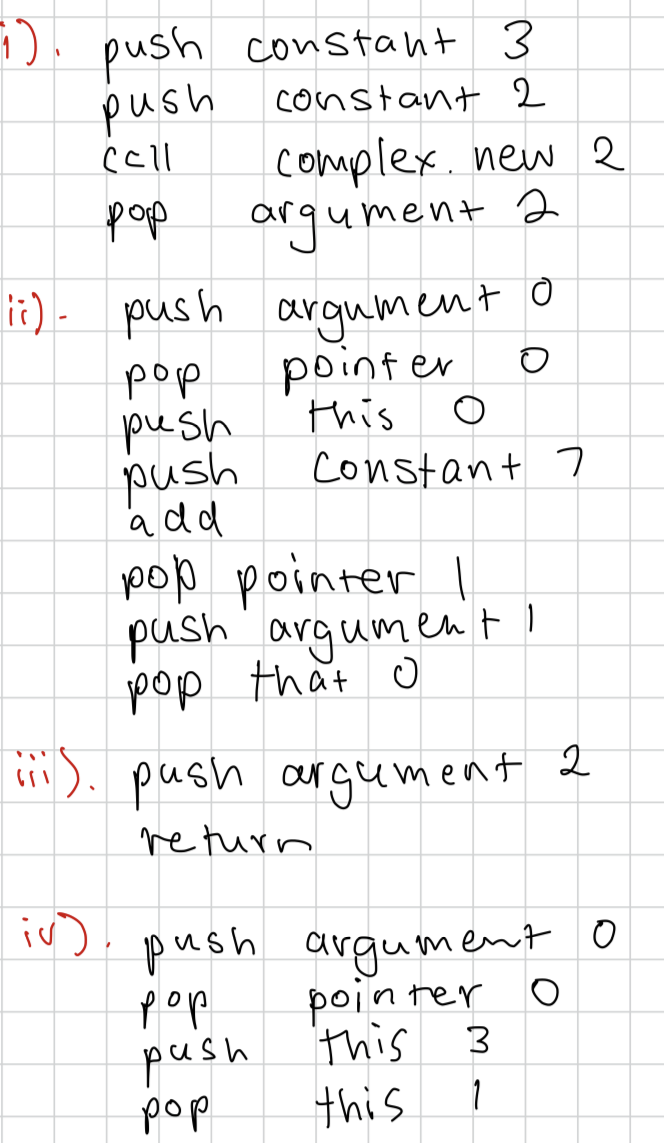 i). push constant 3
push constant 2
call complex. new 2
pop argument 2
ii)- push argument 0
pop pointer 0
push this 0
push constant 7
add
pop pointer 1
push argument 1
pop that 0
iii). push argument 2
return
iv). push argument 0
pop pointer 0
push this 3
pop this 1